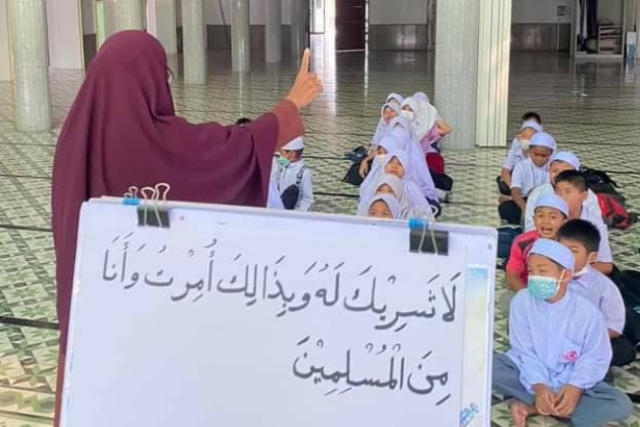 لَا شَرِيْكَ لَهُ وَبِذَالِكَ أُمِرْتُ وَأَنَا
مِنَ الْمُسْلِمِيْنَ